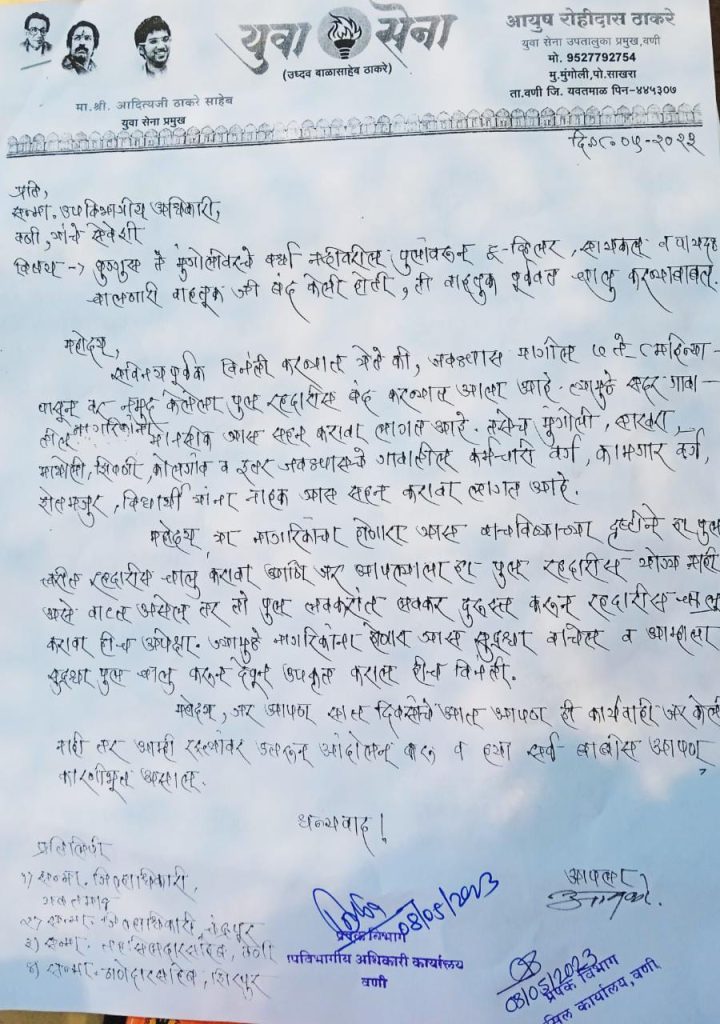 युवा सेना
(उध्दव बाळासाहेब ठाकरे)
मा.श्री. आदित्यजी ठाकरे साहेब
युवा सेना प्रमुख
आयुष रोहीदास ठाकरे
युवा सेना उपतालुका प्रमुख,वणी
मो. 9527792754
मु.मुंगोली,पो.साखरा
ता.वणी जि. यवतमाळ पिन-४४५३०७
दि.०८-०५-२०२३
प्रति,
सन्मा. उपविभागीय अधिकारी,
वणी, यांचे सेवेशी
विषय -> घुग्घुस ते मुंगोलीवरचे वर्धा नदीवरील पुलावरून टू-व्हिलर, सायकल व पायदळ
चालणारी वाहतूक जी बंद केली होती, ती वाहतूक पूर्ववत चालु करण्याबाबत.
महोदय,
सविनयपूर्वक विनंती करण्यात येते की, जवळपास मागील ७ ते ८ महिन्या-
पासून वर नमूद केलेला पुल रहदारीस बंद करण्यात आला आहे. त्यामुळे सदर गावा-
तील नागरिकांना मानसीक त्रास सहन करावा लागत आहे. तसेच मुंगोली, साखरा,
माथोली, शिवणी, कोलगांव व इतर जवळपासचे गावातील कर्मचारी वर्ग, कामगार वर्ग,
शेतमजुर, विद्यार्थी यांना नाहक त्रास सहन करावा लागत आहे.
महोदय, या नागरिकांचा होणारा त्रास वाचविण्याच्या दृष्टीने हा पुल
त्वरीत रहदारीस चालु करावा आणि जर आपल्याला हा पुल रहदारीस योग्य नाही
असे वाटत असेल तर तो पुल लवकरांत लवकर दुरुस्त करून रहदारीस चालू
करावा हीच अपेक्षा. ज्यामुळे नागरिकांना होणारा त्रास सुद्धा वाचेल व आम्हाला
सुद्धा पुल चालु करून देवून उपकृत कराल हीच विनंती.
महोदय, जर आपण सात दिवसांचे आत आपण ही कार्यवाही जर केली
नाही तर आम्ही रस्त्यांवर उतरून आंदोलन करू व ह्या सर्व बाबीस आपण
कारणीभूत असाल.
धन्यवाद!
प्रतिलिपी
१) सन्मा. जिल्हाधिकारी,
यवतमाळ
२) सन्मा. जिल्हाधिकारी, चंद्रपुर
३) सन्मा. तहसिलदारसाहेब, वणी
४) सन्मा. ठाणेदारसाहेब, शिरपुर
आपला
08/05/2023
प्रेषक विभाग
उपविभागीय अधिकारी कार्यालय
वणी
08/05/2023
प्रेषक विभाग
कार्यालय, वणी